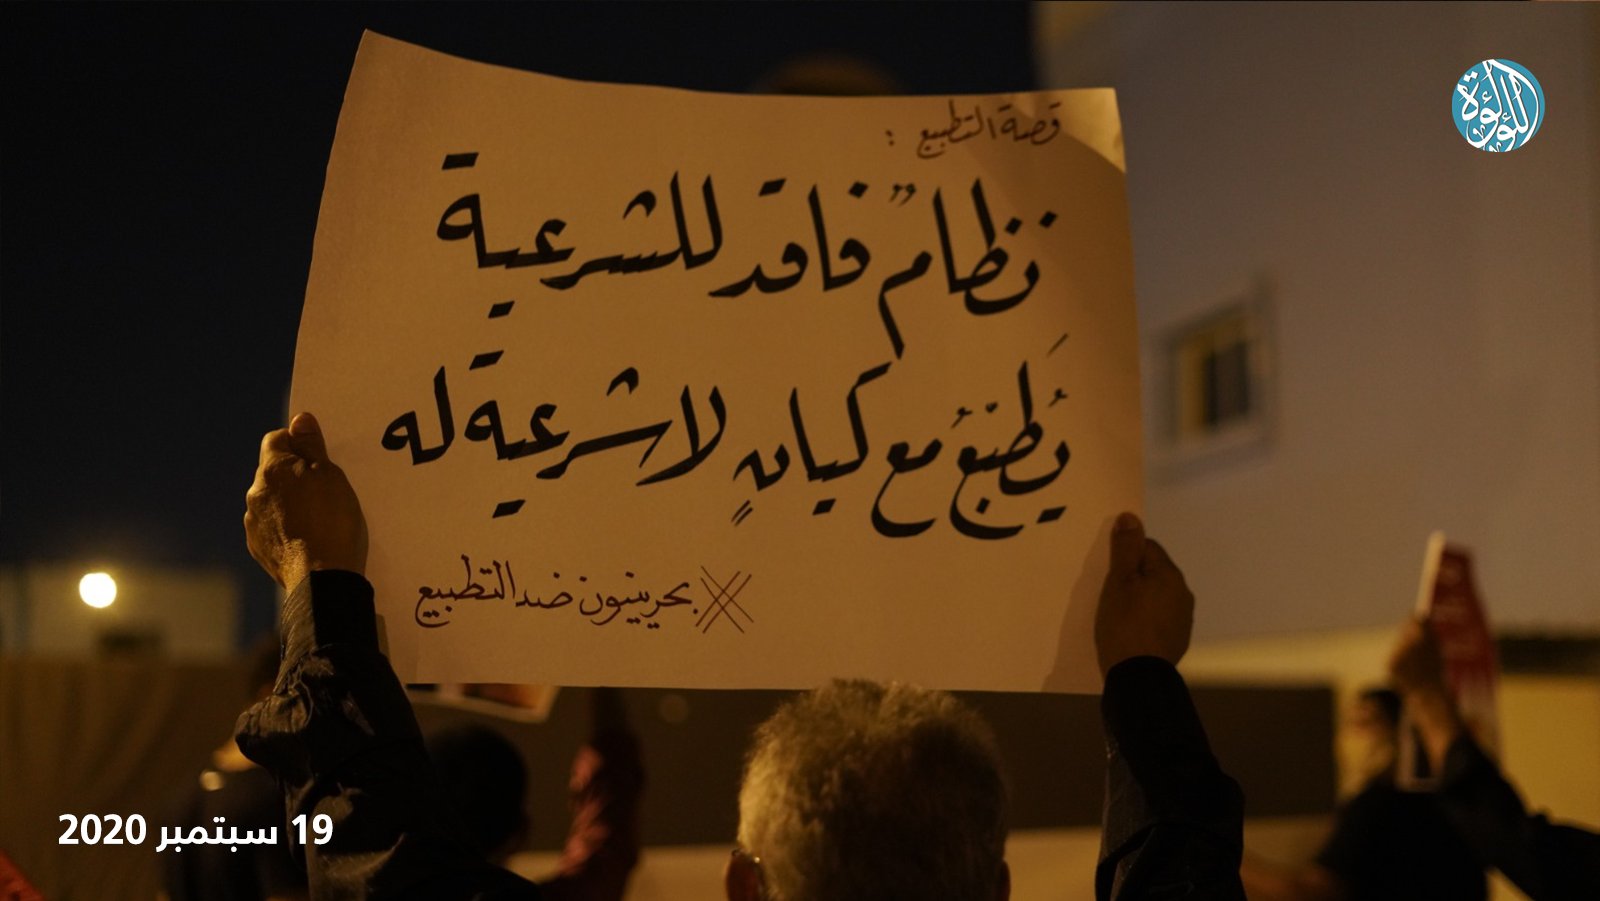 قصة التطبيع :
نظامٌ فاقد للشرعية
يُطَبّعُ مع كيانٍ لا شرعية له
# بحرينيون ضد التطبيع
اللؤلؤة
19 سبتمبر 2020